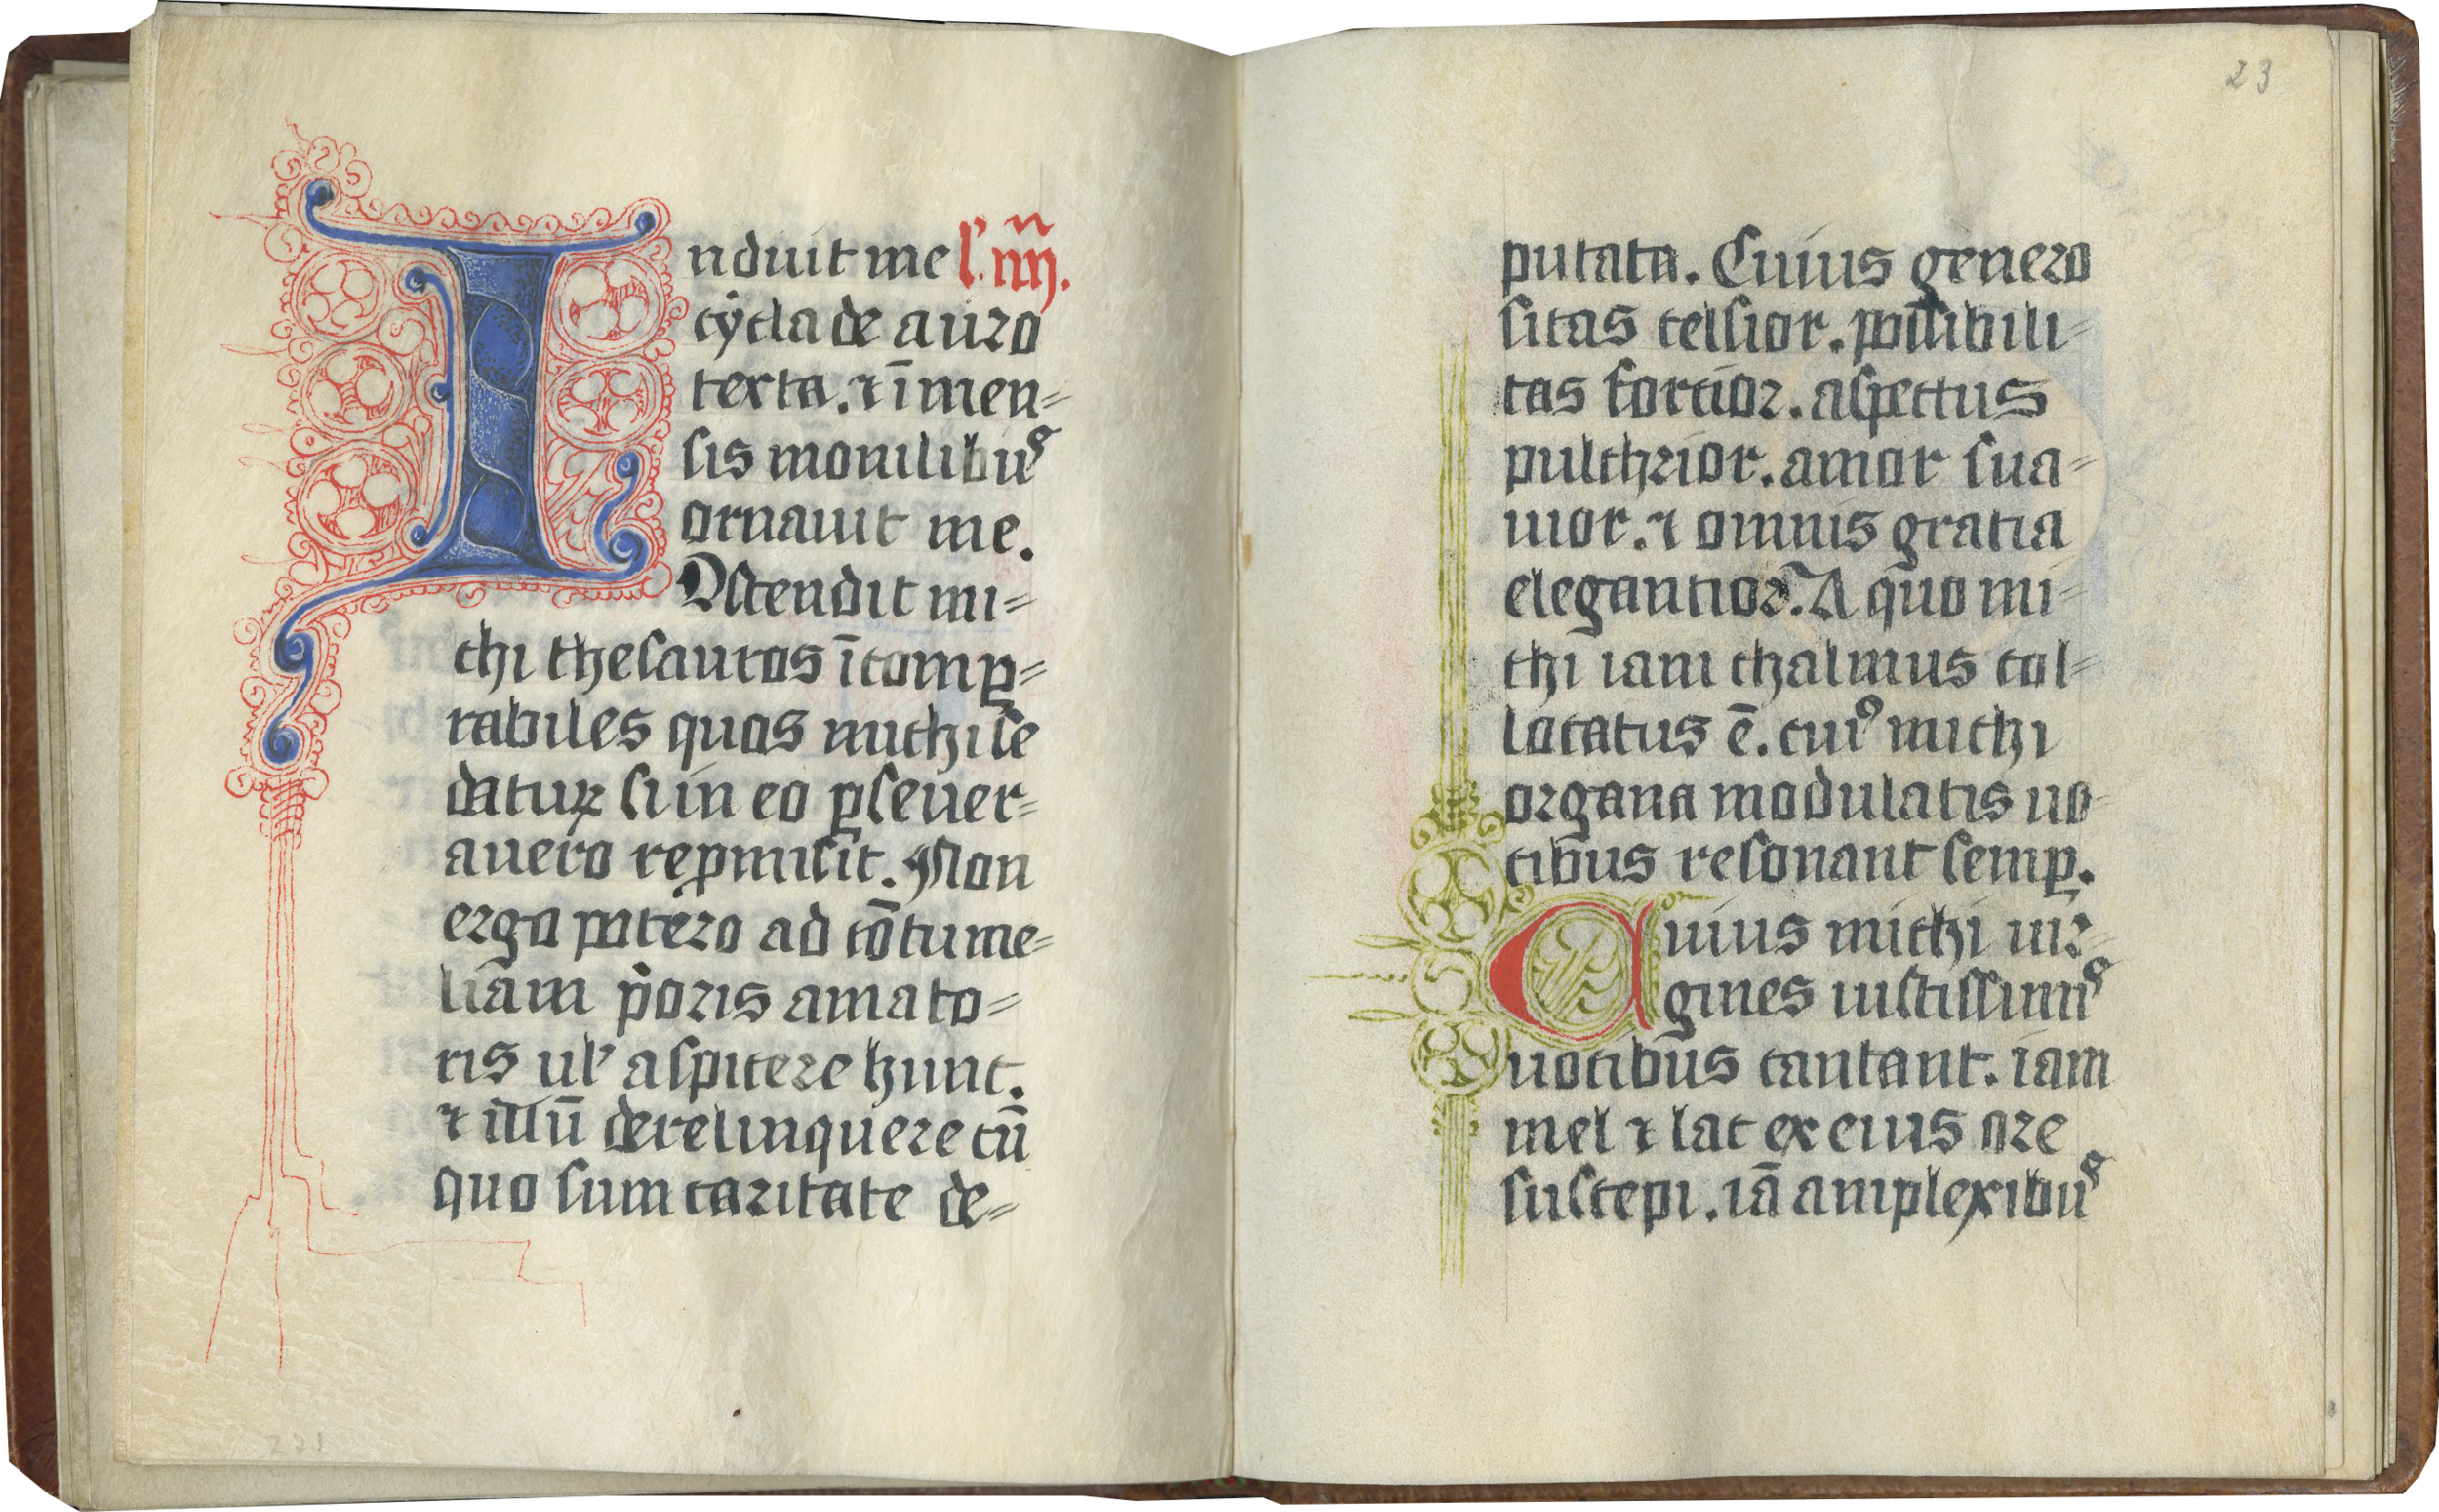 Induit me l'. iiij.
cẏcla de auro
texta. ⁊ īmen=
sis monilibuꝰ
ornauit me.
Ostendit mi=
chi thesauros īcomꝑ=
rabiles quos michi se
daturꝝ si in eo ꝑseuer=
auero reꝓmisit. Non
ergo potero ad cōtume=
liam pͥoris amato=
ris ul' aspicere hunt.
⁊ illū derelinquere cū
quo sum caritate de=
23
putata. Cuius genero
sitas celsior. possibili=
tas fortior. aspectus
pulchrior. amor sua=
uior. ⁊ omnis gratia
elegantior. A quo mi=
chi iam thalmus col=
locatus ē. cuiꝰ michi
organa modulatis uo=
cibus resonant semꝑ.
Cuius michi uir=
gines iustissimiꝰ
uocibus cantant. iam
mel ⁊ lac ex eius ore
suscepi. iā amplexibuꝰ